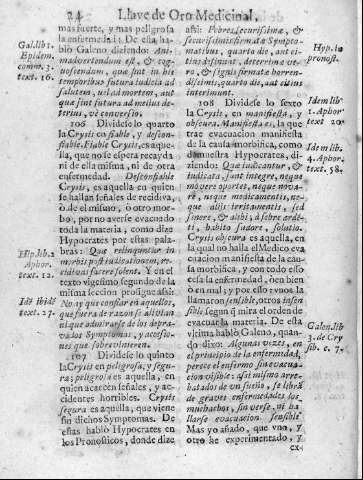 24 Llave de Oro Medicinal,
Gal. lib. 1.
Epidem.
comm. 3.
text. 16.
mas fuerte, y mas peligrosa
la enfermedad: De esta ha-
blò Galeno diziendo: Ani-
madvertendum est, & cog-
noscendum, quæ sint in his
temporibus futura iudicia ad
salutem, vel ad mortem, aut
quæ sint futura ad melius de-
terius, vè conversio.
106 Dividese lo quarto
la Crysis en fiable, y descon-
fiable. Fiable Crysis, es aque-
lla, que no se espera recayda
ni de ella misma, ni de otra
enfermedad. Desconfiable
Crysis, es aquella en quien
se hallan señales de recidiva,
ò de el mismo, ò otro mor-
bo, por no averse evacuado
toda la materia, como dize
Hypocrates por estas pala-
Hip. lib. 2
Aphor.
text. 12.
bras: Quæ relinquuntur in
morbis post iudicationem, re-
cidivas facere solent. Y en el
texto vigesimo segundo de la
misma seccion prosigue assi:
Idẽ ibidẽ
text. 27.
No ay que confiar en aquellos,
que fuera de razon se alivian
ni que admirarse de los depra-
vados Symptomas, y acceso-
nes que sobrevinieren.
107 Dividese lo quinto
la Crysis en peligrosa, y segu-
ra; peligrosa es aquella, en
quien acaecen señales, y ac-
cidentes horribles. Crysis
segura es aquella, que viene
sin dichos Symptomas. De
estas hablò Hypocrates en
los Pronosticos, donde dize
Hyp. lib.
pronost.
assi: Febres securissimæ, &
securissimis firmatæ Sympto-
matibus, quarto die, aut ci-
tius desinunt, deterrimæ ve-
ro, & signis firmatæ horren-
dissimis, quarto die, aut citius
interimunt.
Idem lib
1. Aphor
text 20.
108 Dividese lo sexto
la Crysis, en manifiesta, y
obscura. Manifiesta es, la que
trae evacuacion manifiesta
de la causa morbifica, como
demuestra Hypocrates, di-
Idem lib
4. Aphor
text. 58.
ziendo: Quæ iudicantur, &
iudicata, sunt integre, neque
movere oportet, neque nova-
re, neque medicamentis, ne-
que aliter irritantibus, sed
sinere, & alibi, à febre ardẽ-
ti, habito sudore, solutio.
Crysis obscura es aquella, en
la qual no halla el Medico eva-
cuacion manifiesta de la cau-
sa morbifica, y con todo esso
cessa la enfermedad, ò en bien
ò en mal, por cuyos motivos la
llamaron sensible, otros insen
sible segun q̃ mira el orden de
evacuar la materia. De esta
Galen. lib
3. de Cry
sib. c. 7.
vltima hablò Galeno, quan-
do dixo: Algunas vezes, en
el principio de la enfermedad,
perece el enfermo sin evacua-
cion visible: assi mismo arreba-
tados de vn sueño, se libran
de graves enfermedades los
muchachos, sin verse, ni ha-
llarse evacuacion sensible.
Mas yo añado, que vno, y
otro he experimentado, y
ex-